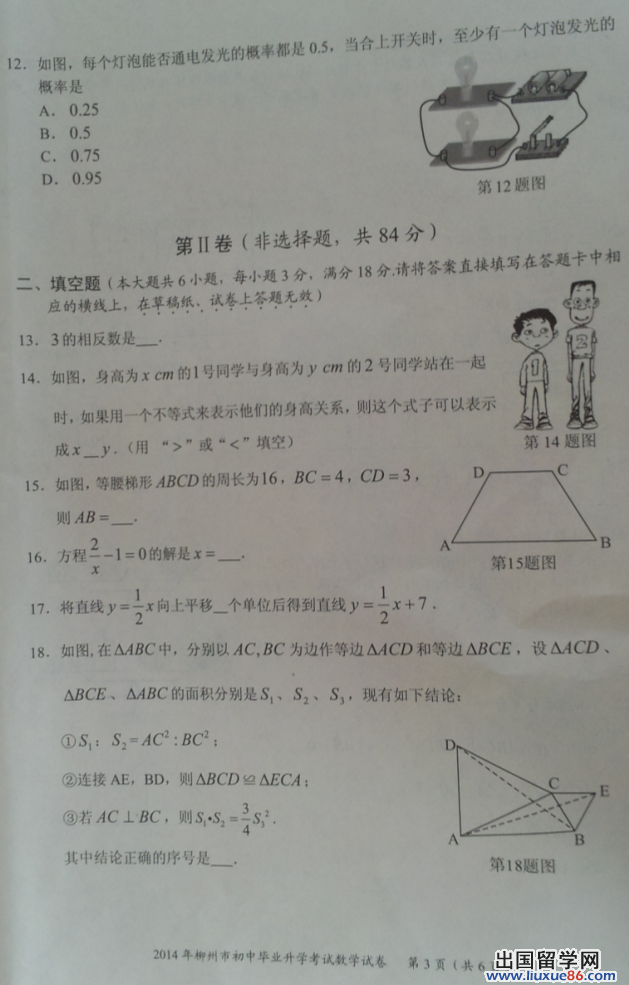 12. 如图，每个灯泡能否通电发光的概率都是 0.5，当合上开关时，至少有一个灯泡发光的
概率是
A. 0.25
B. 0.5
C. 0.75
D. 0.95
第12题图
第Ⅱ卷（非选择题，共84分）
二、填空题（本大题共6小题，每小题3分，满分18分.请将答案直接填写在答题卡中相
应的横线上，在草稿纸、试卷上答题无效）
13. 3的相反数是___.
14. 如图，身高为 x cm 的1号同学与身高为 y cm 的 2 号同学站在一起
时，如果用一个不等式来表示他们的身高关系，则这个式子可以表示
成 x __ y .（用 “>”或“<”填空）
1
2
第14题图
15. 如图，等腰梯形 ABCD 的周长为16，BC = 4，CD = 3，
则 AB = ___.
D C
A B
第15题图
16. 方程 2/x − 1 = 0 的解是 x = ___.
17. 将直线 y = 1/2 x 向上平移__个单位后得到直线 y = 1/2 x + 7 .
18. 如图，在 ΔABC 中，分别以 AC, BC 为边作等边 ΔACD 和等边 ΔBCE，设 ΔACD、
ΔBCE、ΔABC 的面积分别是 S₁、S₂、S₃，现有如下结论：
①S₁：S₂ = AC² : BC²；
②连接 AE，BD，则 ΔBCD ≌ ΔECA；
③若 AC ⊥ BC，则 S₁•S₂ = 3/4 S₃² .
其中结论正确的序号是___.
D
C
E
A
B
第18题图
2014年柳州市初中毕业升学考试数学试卷 第3页（共6
出国留学网
www.liuxue86.com